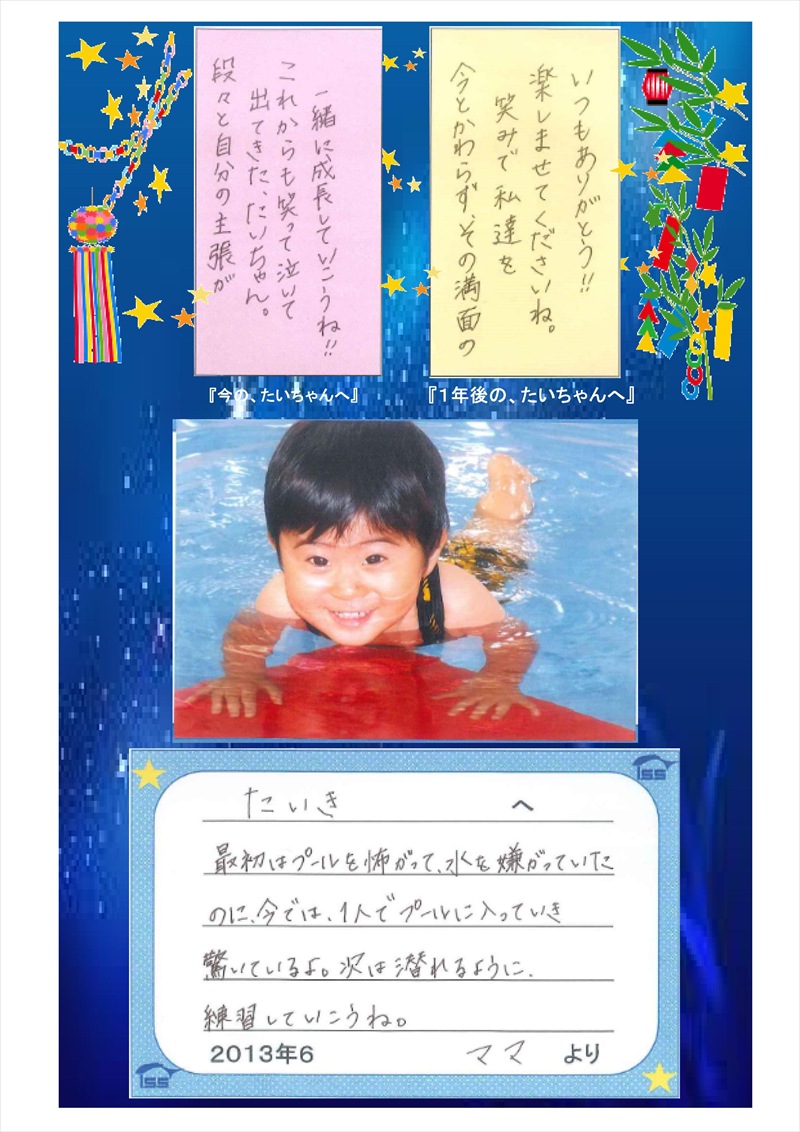 段々と自分の主張が
出てきた、たいちゃん。
これからも笑って泣いて
一緒に、成長していこうね!!
『今の、たいちゃんへ』
いつもありがとう!!
楽しませてくださいね。
笑みで私達を
今とかわらず、その満面の
『1年後の、たいちゃんへ』
ISS
たいき へ
最初はプールを怖がって、水を嫌がっていた
のに、今では、1人でプールに入っていき
驚いているよ。次は潜れるように、
練習していこうね。
2013年6 ママ より
ISS